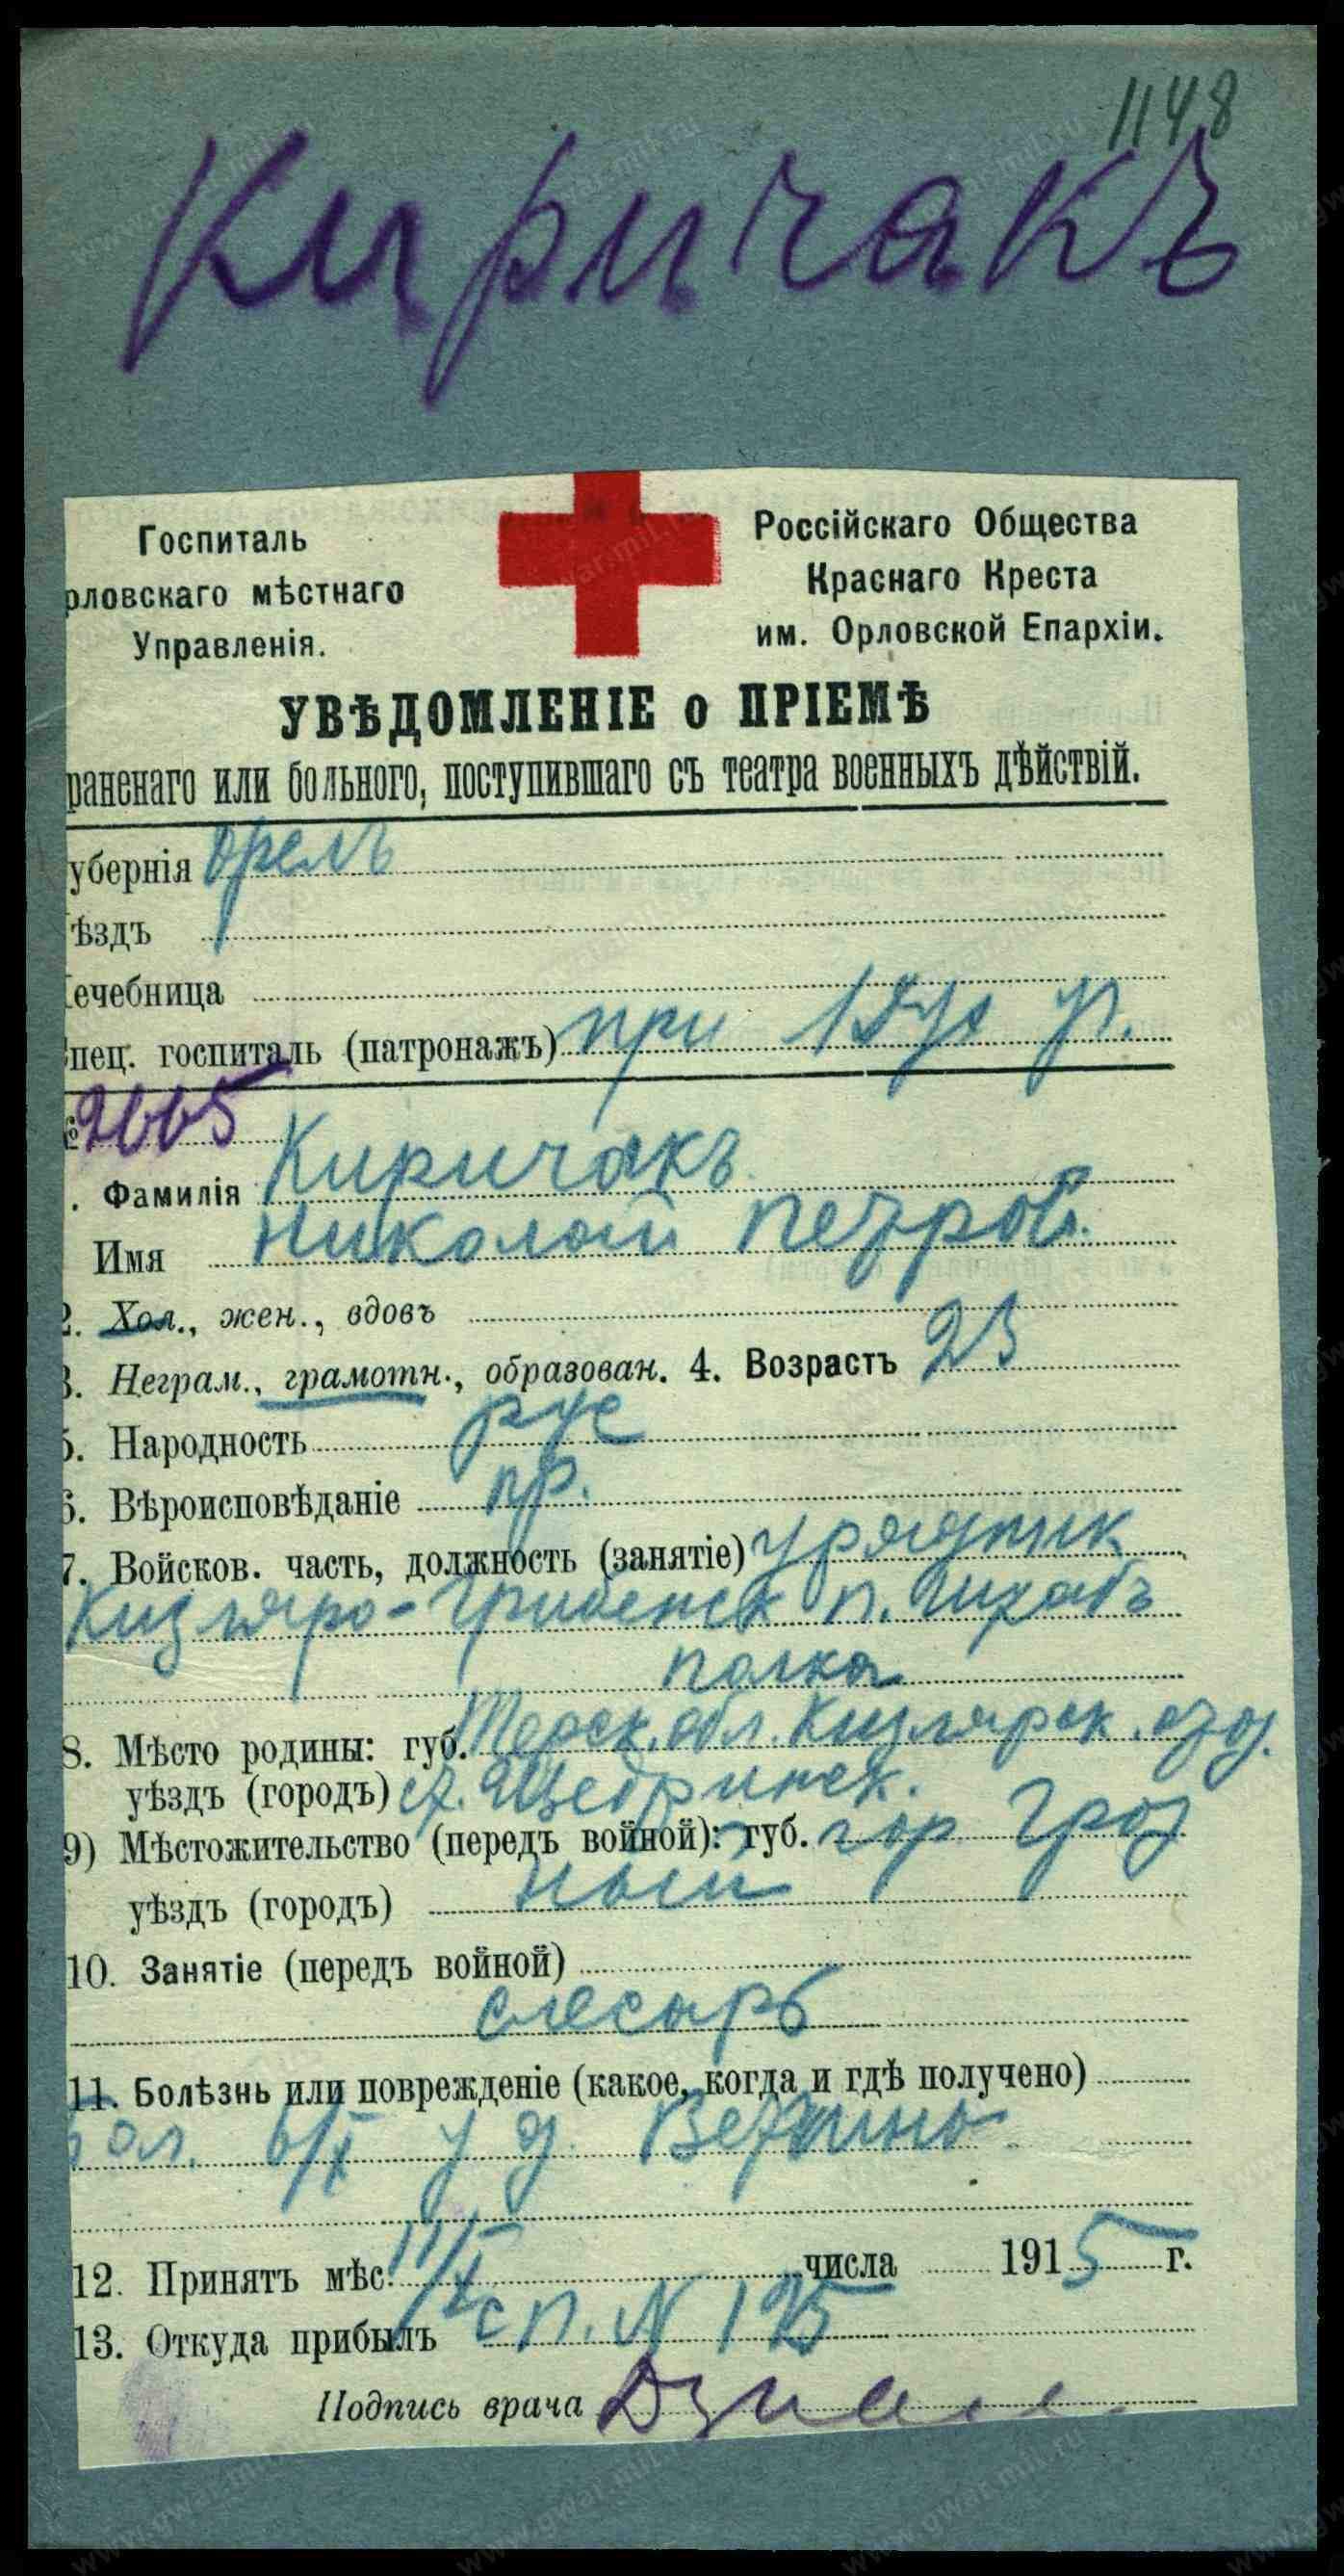 1148
Киричакъ
Госпиталь
рловскаго мѣстнаго
Управленія.
Россійскаго Общества
Краснаго Креста
им. Орловской Епархіи.
УВѢДОМЛЕНІЕ о ПРІЕМѢ
раненаго или больного, поступившаго съ театра военныхъ дѣйствій.
убернія Орелъ
ѣздъ
ечебница
пец. госпиталь (патронажъ) при
№ 2665
. Фамилія Киричакъ
Имя Николай Петров.
2. Хол., жен., вдовъ
3. Неграм., грамотн., образован. 4. Возрастъ 23
5. Народность рус
6. Вѣроисповѣданіе пр.
7. Войсков. часть, должность (занятіе) урядник
Кизляро-Гребенск п.
полка
8. Мѣсто родины: губ. Терск. обл. Кизлярск.
уѣздъ (городъ) ст. Щедринск.
9) Мѣстожительство (передъ войной): губ. гор Гроз
уѣздъ (городъ) ный
10. Занятіе (передъ войной)
слесырь
11. Болѣзнь или поврежденіе (какое, когда и гдѣ получено)
у д.
12. Принятъ мѣс. 11/X числа 1915 г.
13. Откуда прибылъ с п. N 125
Подпись врача
www.gwar.mil.ru